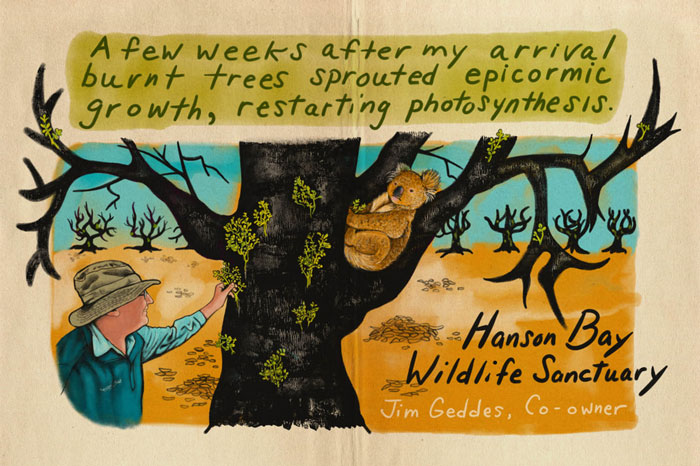 A few weeks after my arrival
burnt trees sprouted epicormic
growth, restarting photosynthesis.
Hanson Bay
Wildlife Sanctuary
Jim Geddes, Co-owner